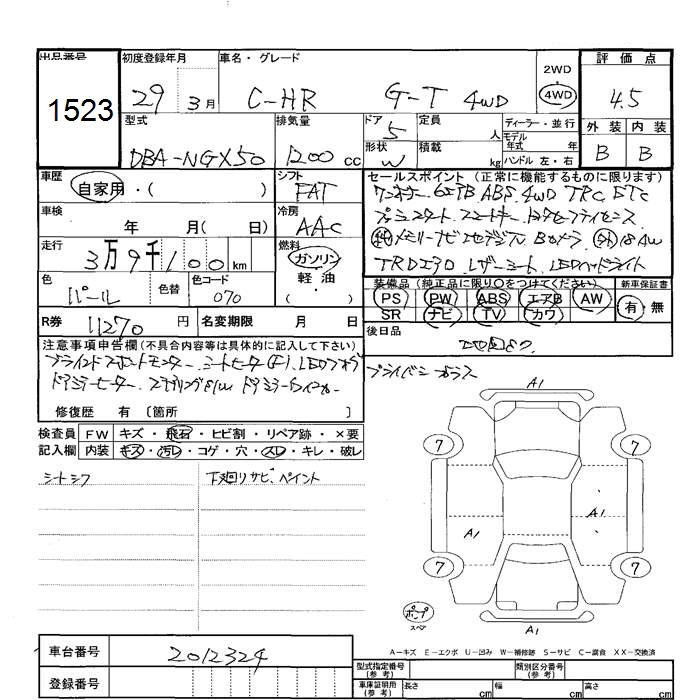 出品番号 初度登録年月 車名・グレード 2WD 評価点
1523 29 3月 C-HR G-T 4WD 4WD 4.5
型式 排気量 ドア 5 定員 人 ディーラー・並行 外装 内装
DBA-NGX50 1200 cc 形状 W 積載 kg モデル年式 年 B B
ハンドル 左・右
車歴 シフト セールスポイント(正常に機能するものに限ります)
自家用・( ) FAT ワンオーナー 6エアB ABS. 4WD TRC ETC
車検 冷房 プッシュスタート. スマートキー. トヨタセーフティセンス
年 月( 日) AAC 純メモリーナビ 地デジTV Bカメラ. 外18AW
走行 燃料 TRDエアロ レザーシート. LEDヘッドライト
3万9千100km ガソリン
軽油
色 色替 色コード 装備品(純正品に限り○をつけてください) 新車保証書
パール 070 PS PW ABS エアB AW 有・無
SR ナビ TV カワ
R券 11270 円 名変期限 月 日 後日品
注意事項申告欄(不具合内容等は具体的に記入して下さい)
ブラインドスポットモニター. シートヒーター(F). LEDフォグ プライバシーガラス
ドアミラーヒーター.
修復歴 有〔箇所 〕
検査員 FW キズ・飛石・ヒビ割・リペア跡・×要
記入欄 内装 キズ・汚レ・コゲ・穴・スレ・キレ・破レ
シートシワ 下廻りサビ、ペイント
A1
7 7
A1 A1
7 7
ポンプ
スペア A1
A-キズ E-エクボ U-凹み W-補修跡 S-サビ C-腐食 XX-交換済
車台番号 2012324
登録番号
型式指定番号(参考) 類別区分番号(参考)
車庫証明用(参考) 長さ cm 幅 cm 高さ cm